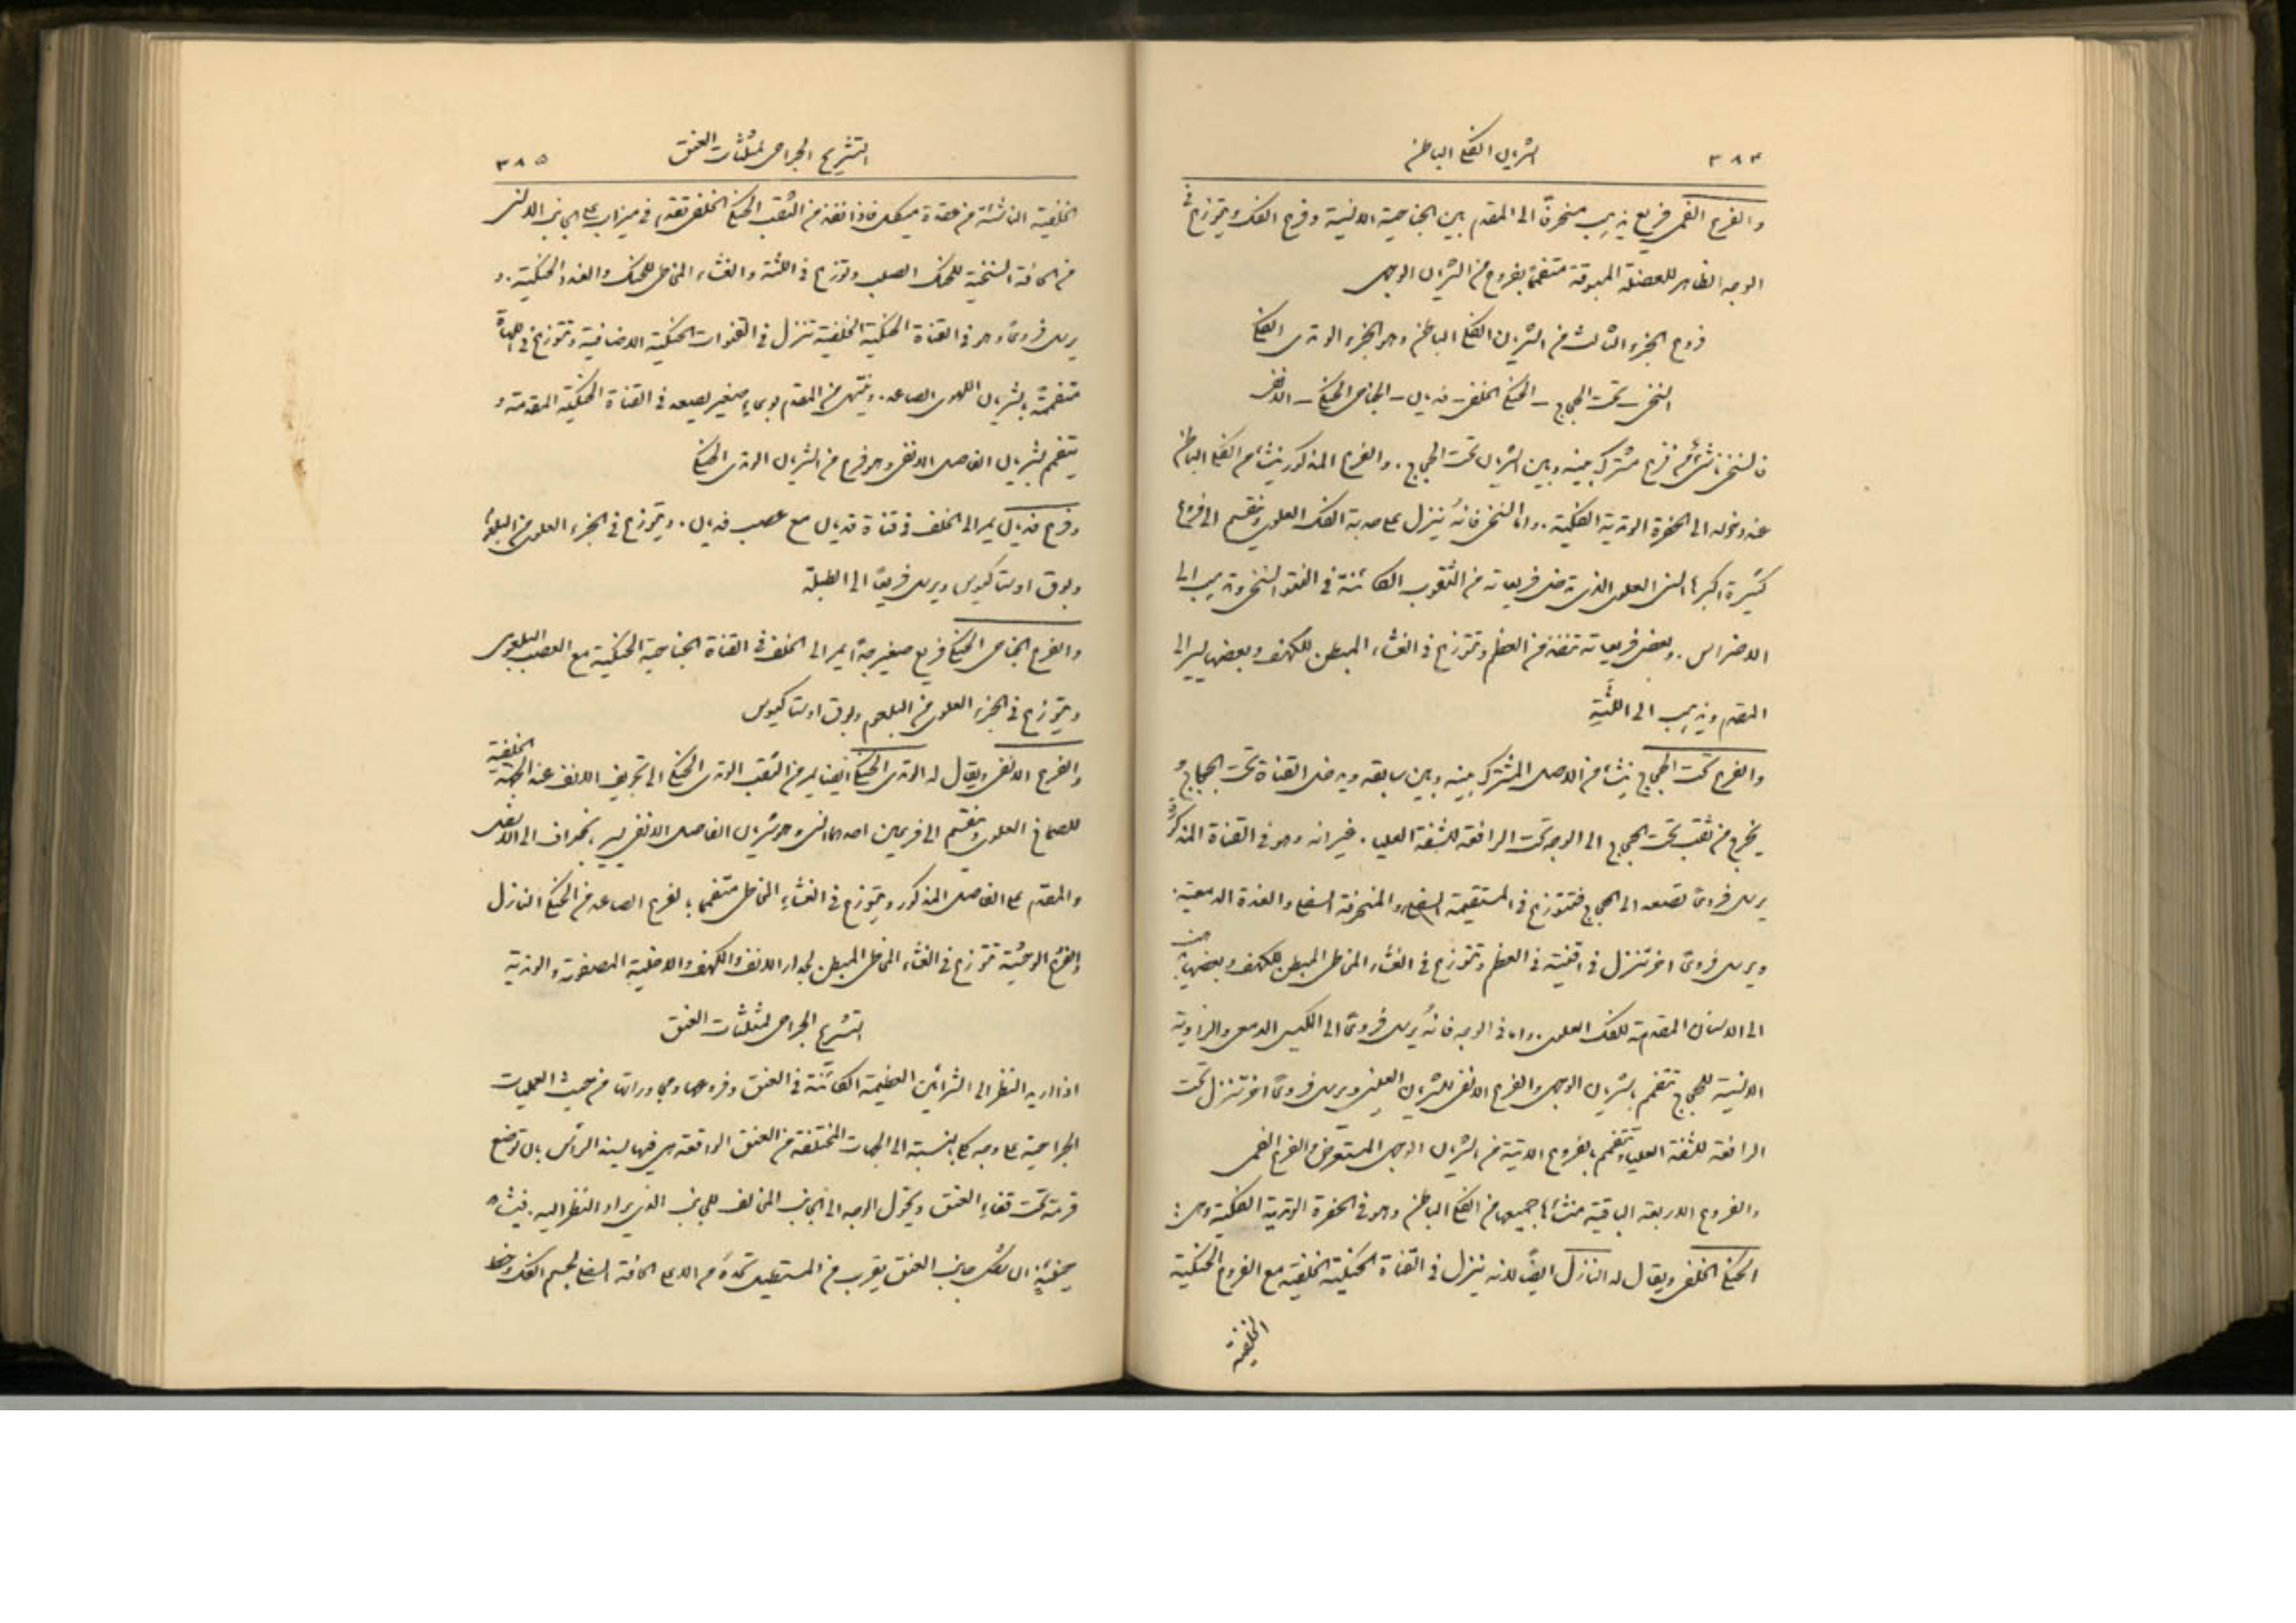 ٣٨٤
الشريان الفكي الباطن
والفرع الفمي فريع يذهب منحرفًا الى المقدم بين الجناحية الانسية وفرع الفك ويتوزع في
الوجه الظاهر للعضلة المبوقة متفممًا بفروع من الشريان الوجهي
فروع الجزء الثالث من الشريان الفكي الباطن وهو الجزء الوتدي الفكي
السنخي – تحت الحجاج – الحنكي الخلفي – فديان – الجناحي الحنكي – الانفي
فالسنخي ناشئ من فرع مشترك بينه وبين الشريان تحت الحجاج. والفرع المذكور ينشأ من الفكي الباطن
عند دخوله الى الحفرة الوتدية الفكية. واما السنخي فانهُ ينزل على حدبة الفك العلوي وينقسم الى فروع
كثيرة اكبرها السني العلوي الذي تدخل فريعاته من الثقوب الكائنة في النتو السنخي وتذهب الى
الاضراس. وبعض فريعاته تنفذ من العظم وتتوزع في الغشاء المبطن للكهف وبعضها يسير الى
المقدم ويذهب الى اللثة
والفرع تحت الحجاج ينشأ من الاصل المشترك بينه وبين سابقه ويدخل القناة تحت الحجاج و
يخرج من ثقب تحت الحجاج الى الوجه تحت الرافعة للشفة العليا. غير انه وهو في القناة المذكورة
يرسل فروعًا تصعد الى الحجاج فتتوزع في المستقيمة السفلى والمنحرفة السفلى والغدة الدمعية.
ويرسل فروعًا اخر تنزل في اقنية في العظم وتتوزع في الغشاء المخاطي المبطن للكهف وبعضها يذهب
الى الاسنان المقدمة للفك العلوي. واما في الوجه فانهُ يرسل فروعًا الى الكيس الدمعي والزاوية
الانسية للحجاج تتفمم بشريان الوجهي والفرع الانفي للشريان العيني ويرسل فروعًا اخر تنزل تحت
الرافعة للشفة العليا وتتفمم بفروع الاتية من الشريان الوجهي المستعرض والفرع الفمي
والفروع الاربعة الباقية منشأها جميعها من الفكي الباطن وهو في الحفرة الوتدية الفكية وهي:
الحنكي الخلفي ويقال له النازل ايضًا لانه ينزل في القناة الحنكية الخلفية مع الفروع الحنكية
الخلفية
التشريح الجراحي لمثلثات العنق
٣٨٥
الخلفية الناشئة من عقدة ميكل فاذا نفذ من الثقب الحنكي الخلفي تقدم في ميزاب على الجانب الانسي
من الحافة السنخية للحنك الصلب وتوزع في اللثة والغشاء المخاطي للحنك والغدد الحنكية. و
يرسل فروعًا وهو في القناة الحنكية الخلفية تنزل في القنوات الحنكية الاضافية وتتوزع في اللهاة
متفممة بشريان اللهوي الصاعد. وينتهي من المقدم بوعاءٍ صغير يصعد في القناة الحنكية المقدمة و
يتفمم بشريان الفاصل الانفي وهو فرع من الشريان الوتدي الحنكي
وفرع فديان يمر الى الخلف في قناة فديان مع عصب فديان. ويتوزع في الجزء العلوي من البلعوم
وبوق اوستاكيوس ويرسل فريعًا الى الطبلة
والفرع الجناحي الحنكي فريع صغير جدًا يمر الى الخلف في القناة الجناحية الحنكية مع العصب البلعومي
ويتوزع في الجزء العلوي من البلعوم وبوق اوستاكيوس
والفرع الانفي ويقال له الوتدي الحنكي ايضًا يمر من الثقب الوتدي الحنكي الى تجويف الانف عند الجهة الخلفية
للصماخ العلوي وينقسم الى فرعين احدهما انسي وهو شريان الفاصل الانفي يسير بانحراف الى الاسفل
والمقدم على الفاصل المذكور ويتوزع في الغشاء المخاطي متفممًا بالفرع الصاعد من الحنكي النازل
والفرع الوحشية تتوزع في الغشاء المخاطي المبطن لجدار الانف والكهف والاخلية المصفوية والوتدية
التشريح الجراحي لمثلثات العنق
اذا اريد النظر الى الشرائين العظيمة الكائنة في العنق وفروعها ومجاوراتها من حيث العمليات
الجراحية على وجه بالنسبة الى الجهات المختلفة من العنق الواقعة هي فيها يسند الرأس بان توضع
قرمة تحت قفاء العنق ويحول الوجه الى الجانب المخالف للجانب الذي يراد النظر اليه. فيشاهد
حينئذٍ ان شكل جانب العنق يقرب من المستطيل تحدهُ من الاعلى الحافة السفلى لجسم الفك وخط